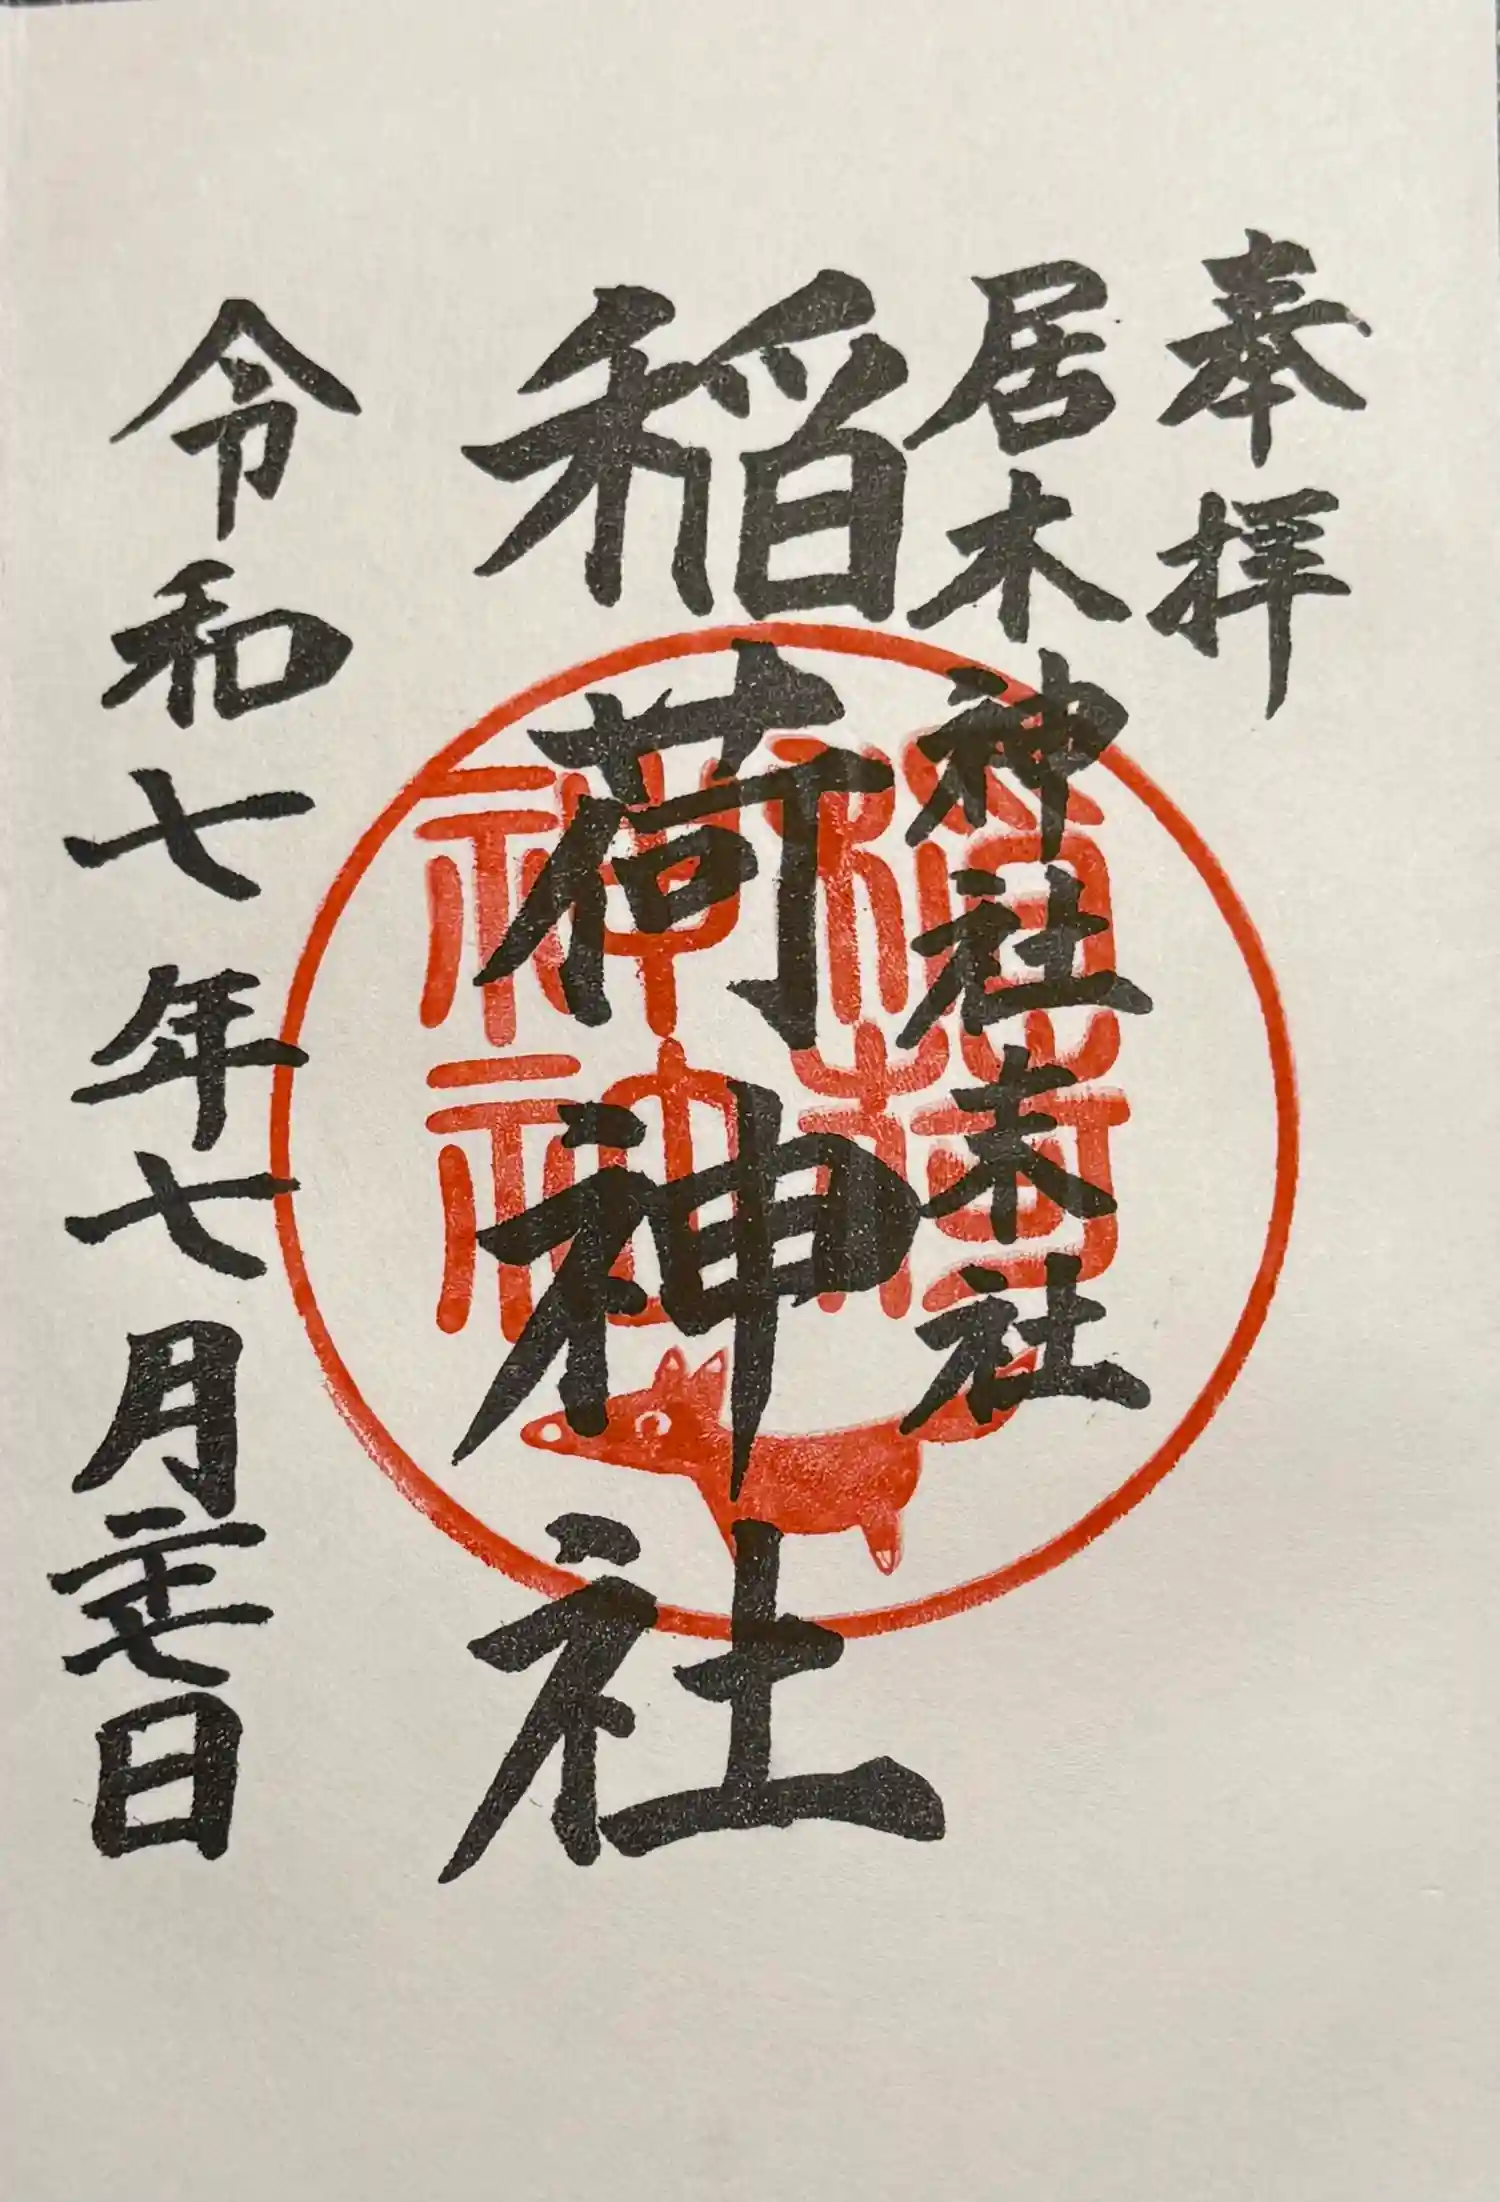 奉拝
居木神社末社
稲荷神社
令和七年七月二十七日
稲荷神神